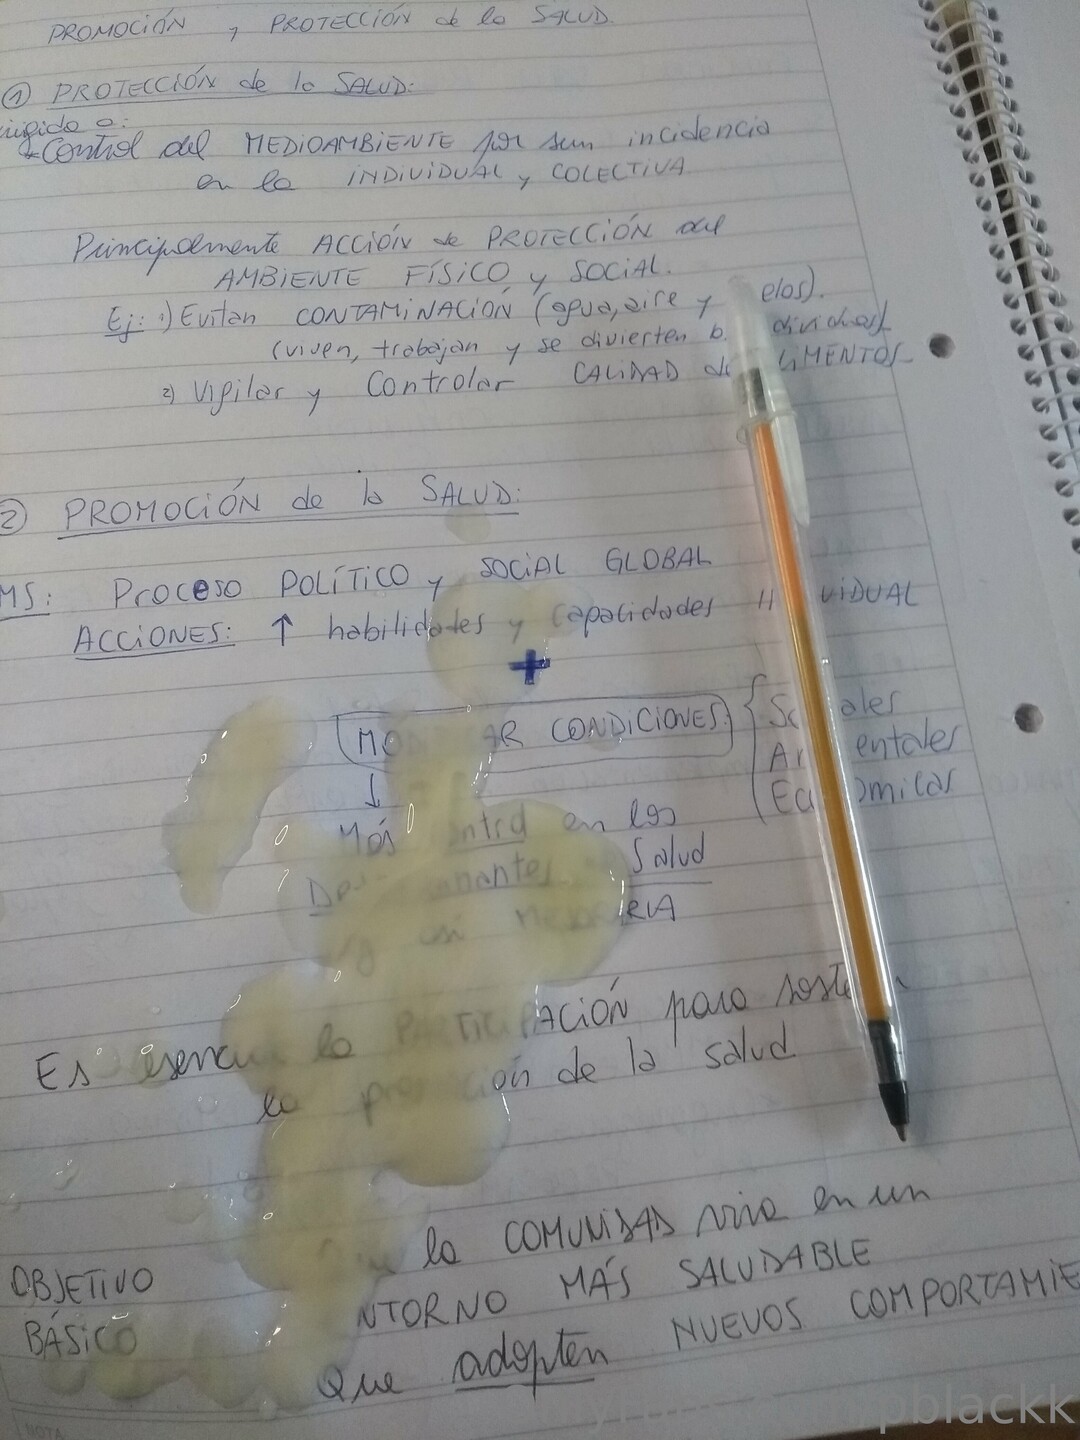 PROMOCIÓN y PROTECCIÓN de la SALUD.
① PROTECCIÓN de la SALUD:
irigido a:
Control del MEDIOAMBIENTE por sun incidencia
en la INDIVIDUAL y COLECTIVA
Principalmente ACCIÓN de PROTECCIÓN del
AMBIENTE FÍSICO y SOCIAL.
Ej: 1) Evitan CONTAMINACIÓN (agua, aire y elos).
(viven, trabajan y se divierten
2) Vigilar y Controlar CALIDAD de LIMENTOS
② PROMOCIÓN de la SALUD:
MS: Proceso POLÍTICO y SOCIAL GLOBAL
ACCIONES: ↑ habilidades y capacidades VIDUAL
+
CONDICIONES: { ales
↓ entales
Más en los omicas
Salud
y así
Es la PARTICIPACIÓN para
la de la salud
OBJETIVO la COMUNIDAD viva en un
BÁSICO NTORNO MÁS SALUDABLE
Que adopten NUEVOS COMPORTAMIE
NOTA
pblackk